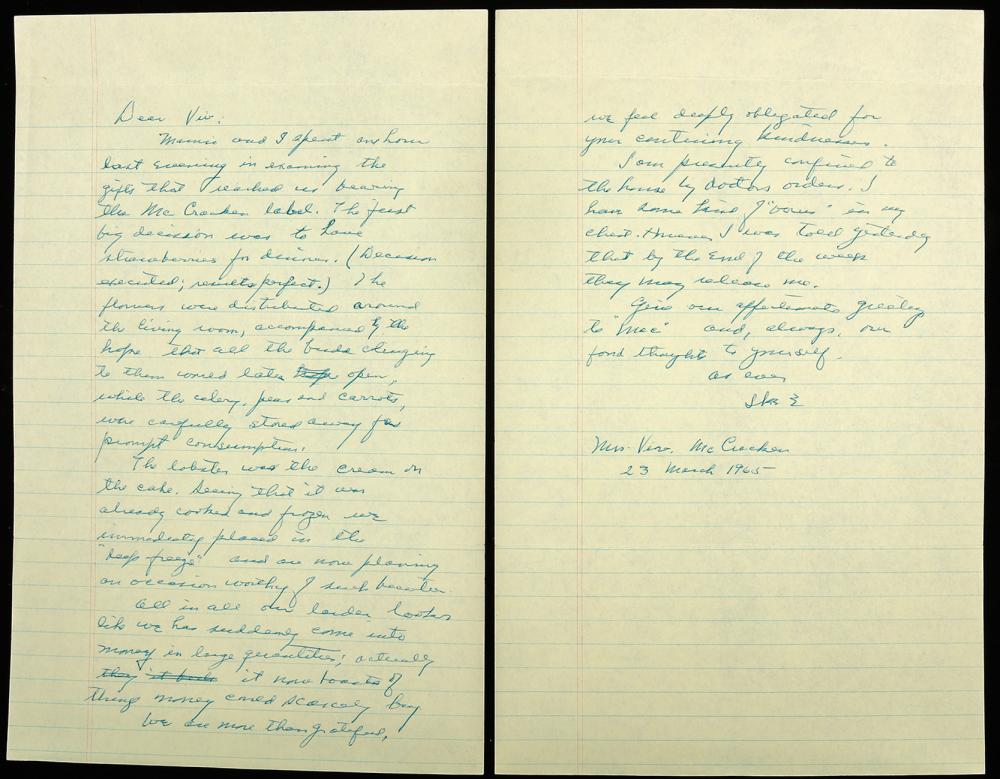 Dear Viv:
Mamie and I spent an hour
last evening in examing the
gifts that reached us bearing
the McCracken label. The first
big decision was to have
strawberries for dinner. (Decision
executed; results perfect.) The
flowers were distributed around
the living room, accompanied by the
hope that all the buds clinging
to them would later open,
while the celery, peas and carrots,
were carefully stored away for
prompt consumption.
The lobster was the cream on
the cake. Seeing that it was
already cooked and frozen we
immediately placed in the
"deep freeze" and are now planning
an occasion worthy of such
All in all our larder looks
like we has suddenly come into
money in large quantities; actually
they it now boasts of
things money could scarcely buy
We are more than grateful,
we feel deeply obligated for
your continuing kindnesses.
I am presently confined to
the house by doctors orders. I
have some kind of "virus" in my
chest. However I was told yesterday
that by the end of the week
they may release me.
Give our affectionate greeting
to "Mac" and, always, our
fond thoughts to yourself.
As ever
Ike E
Mrs. Viv. McCracken
23 March 1965